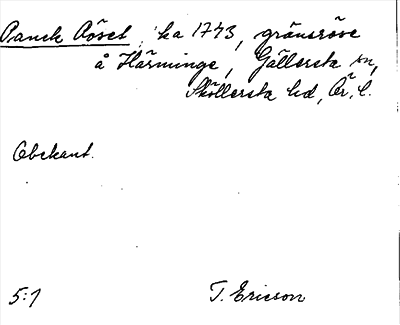 Panck Röset, ha 1743, gränsröse
å Härminge, Gällersta sn,
Sköllersta hd, Ör. l.
Obekant.
5:1
T. Ericson